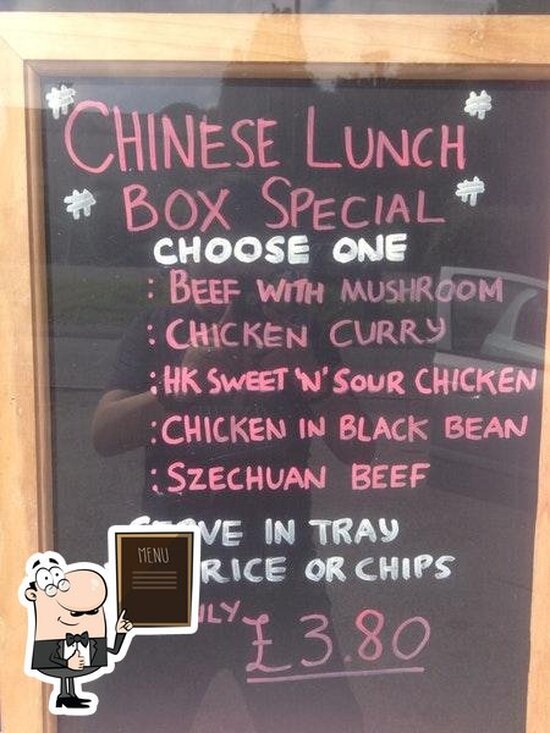 # CHINESE LUNCH #
# BOX SPECIAL #
CHOOSE ONE
: BEEF WITH MUSHROOM
: CHICKEN CURRY
: HK SWEET 'N' SOUR CHICKEN
: CHICKEN IN BLACK BEAN
: SZECHUAN BEEF
IN TRAY
RICE OR CHIPS
£3.80
MENU